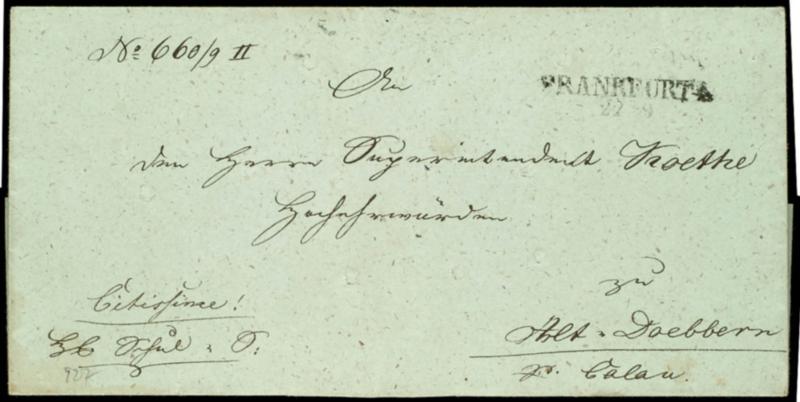 No 660/9 II
An
FRANKFURT
22 9
den Herrn Superintendent Koethe
Hochehrwürden
zu
Citissime!
Alt-Doebbern
Schul-S:
pr. Calau.
927